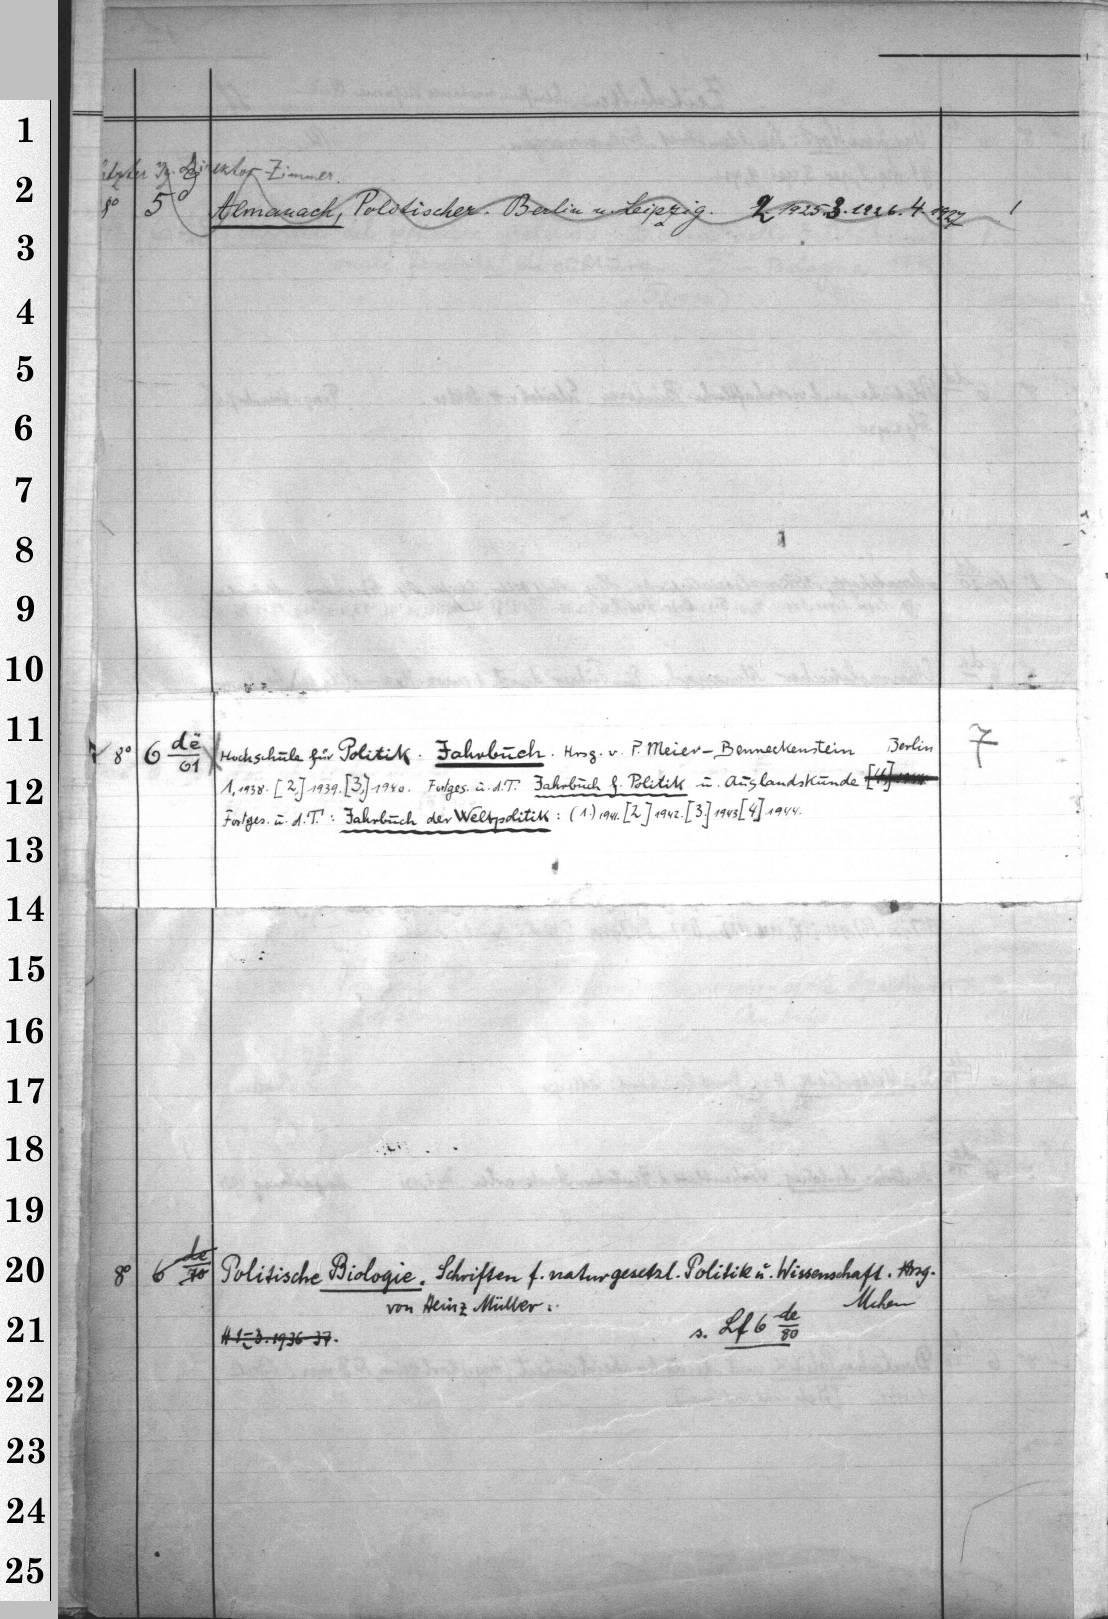 1
2
3
4
5
6
7
8
9
10
11
12
13
14
15
16
17
18
19
20
21
22
23
24
25
Direktor-Zimmer.
8° 5° Almanach, Politischer. Berlin u. Leipzig. 2 1925. 3. 1926. 4. 1927 1
8° 6 de/01 Hochschule für Politik. Jahrbuch. Hrsg. v. P. Meier-Benneckenstein Berlin 7
1, 1938. [2,] 1939. [3,] 1940. Fortges. u. d. T. Jahrbuch f. Politik u. Auslandskunde [4,]
Fortges. u. d. T.: Jahrbuch der Weltpolitik: (1.) 1941. [2] 1942. [3.] 1943 [4] 1944.
8° 6 de/70 Politische Biologie. Schriften f. naturgesetzl. Politik u. Wissenschaft. Hrsg.
von Heinz Müller. Mchen
H 1-3. 1936-37. s. Lf 6 de/80